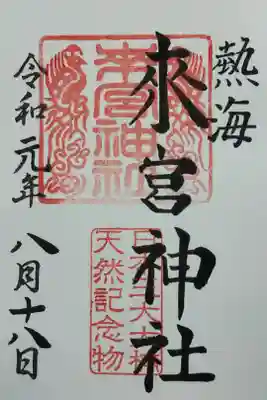 熱海
來宮神社
來宮神社
日本三大樟
天然記念物
令和元年
八月十八日